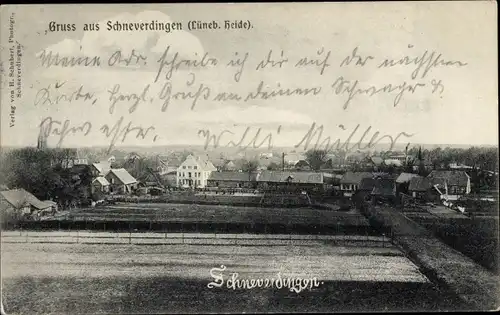 Gruss aus Schneverdingen (Lüneb. Heide).
Meine Adr. schreibe ich dir auf der nächsten
Karte. Herzl. Gruß an deinen Schwager &
Schwester. Willi Müller
Verlag von H. Schubert, Photogr.,
Schneverdingen.
Schneverdingen.